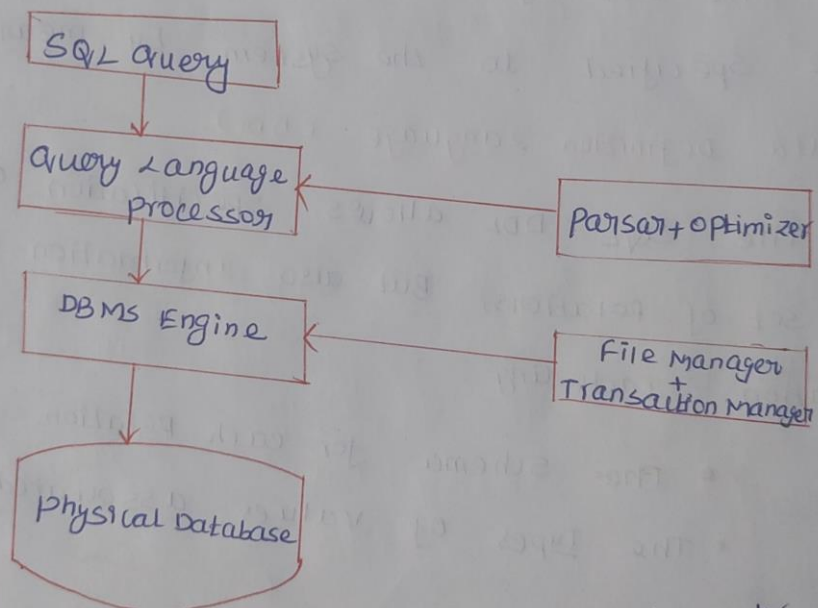 SQL Query
Query Language
Processor
Parsar + Optimizer
DBMS Engine
File Manager
+
Transaction Manager
Physical Database